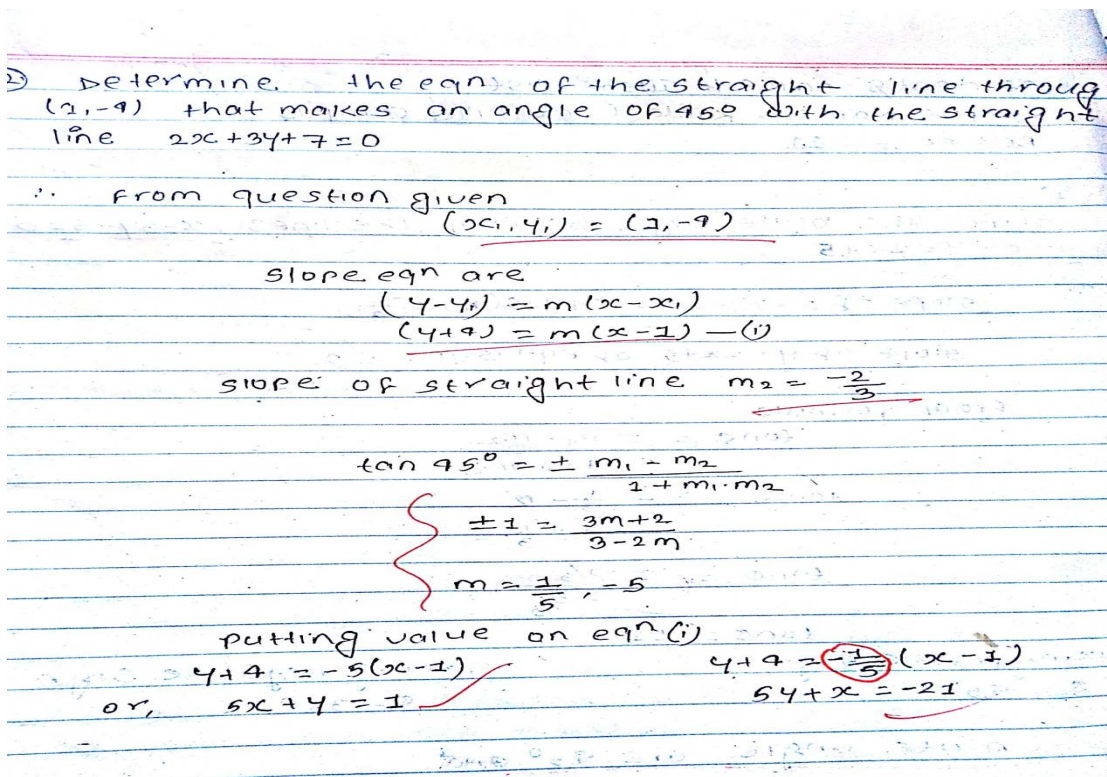 2) Determine. the eqn. of the straight line throug
(1,-4) that makes an angle of 45° with the straight
line 2x+3y+7=0
∴ From question given
(x₁, y₁) = (1,-4)
slope eqn are
(y-y₁) = m(x-x₁)
(y+4) = m(x-1) — (i)
slope of straight line m₂ = -2/3
tan 45° = ± m₁ - m₂ / 1 + m₁.m₂
±1 = 3m+2 / 3-2m
m = 1/5, -5
putting value on eqn (i)
y+4 = -5(x-1) y+4 = -1/5 (x-1)
or, 5x+y = 1 5y+x = -21